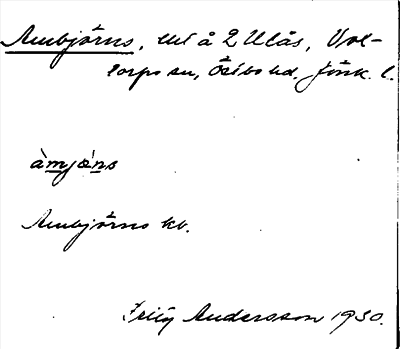 Ambjörns, lht å 2 Ulås, Vol-
torps sn, Östbo hd. Jönk. l.
àmjò̈ns
Ambjörns kv.
Fritz Andersson 1930.